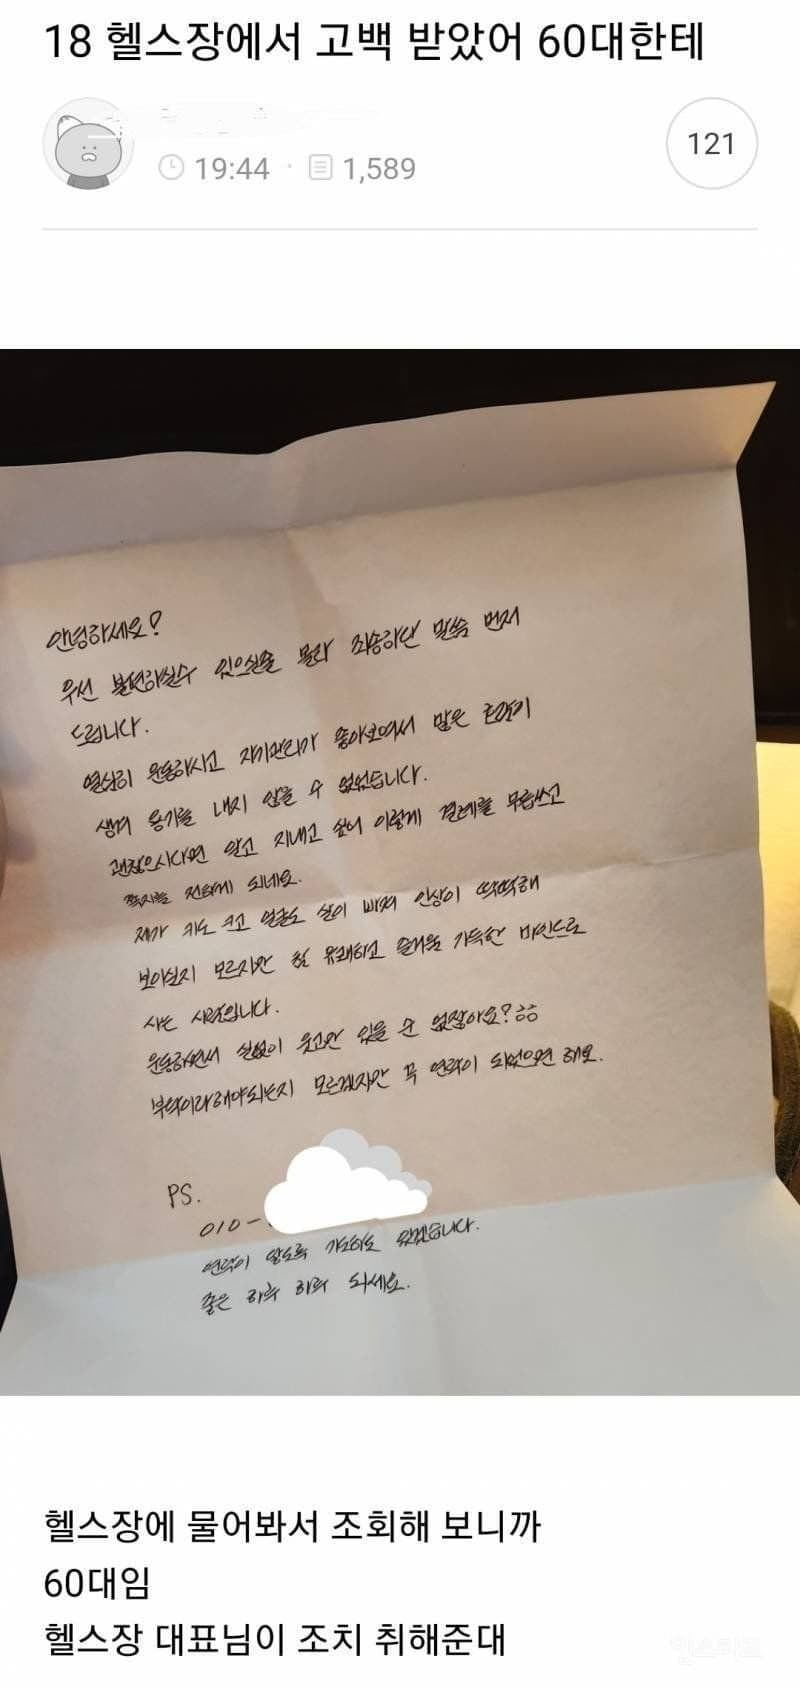 18 헬스장에서 고백 받았어 60대한테
19:44 · 1,589
121
안녕하세요?
우선 불편하실수 있으실줄 몰라 죄송하단 말씀 먼저
드립니다.
열심히 운동하시고 자기관리가 좋아보여서 맑은 호감이
생겨 용기를 내지 않을 수 없었습니다.
괜찮으시다면 알고 지내고 싶어 이렇게 결례를 무릅쓰고
쪽지를 전하게 되네요.
제가 키도 크고 얼굴도 살이 빠져 인상이 딱딱해
보이실지 모르지만 참 유쾌하고 즐거움 가득한 마인드로
사는 사람입니다.
운동하면서 실없이 웃고만 있을 순 없잖아요?ㅎㅎ
부탁이라해야되는지 모르겠지만 꼭 연락이 되었으면 해요.
PS.
010-
연락이 않도록 기다리고 있겠습니다.
좋은 하루 하루 되세요.
헬스장에 물어봐서 조회해 보니까
60대임
헬스장 대표님이 조치 취해준대
인스티즈